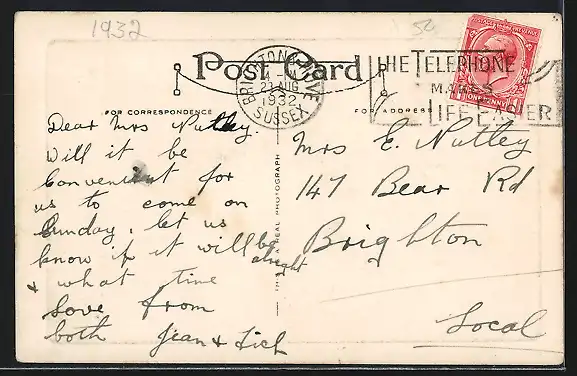 1932
Post Card
FOR CORRESPONDENCE
FOR ADDRESS
BRIGHTON & HOVE
SUSSEX
21 AUG
1932
THE TELEPHONE
MAKES
LIFE EASIER
POSTAGE REVENUE
ONE PENNY
THIS IS A REAL PHOTOGRAPH
Dear Mrs Nutley.
Will it be
convenient for
us to come on
Sunday, let us
know if it will be
alright
& what time
Love from
both Jean &
Mrs E. Nutley
147 Bear Rd
Brighton
Local